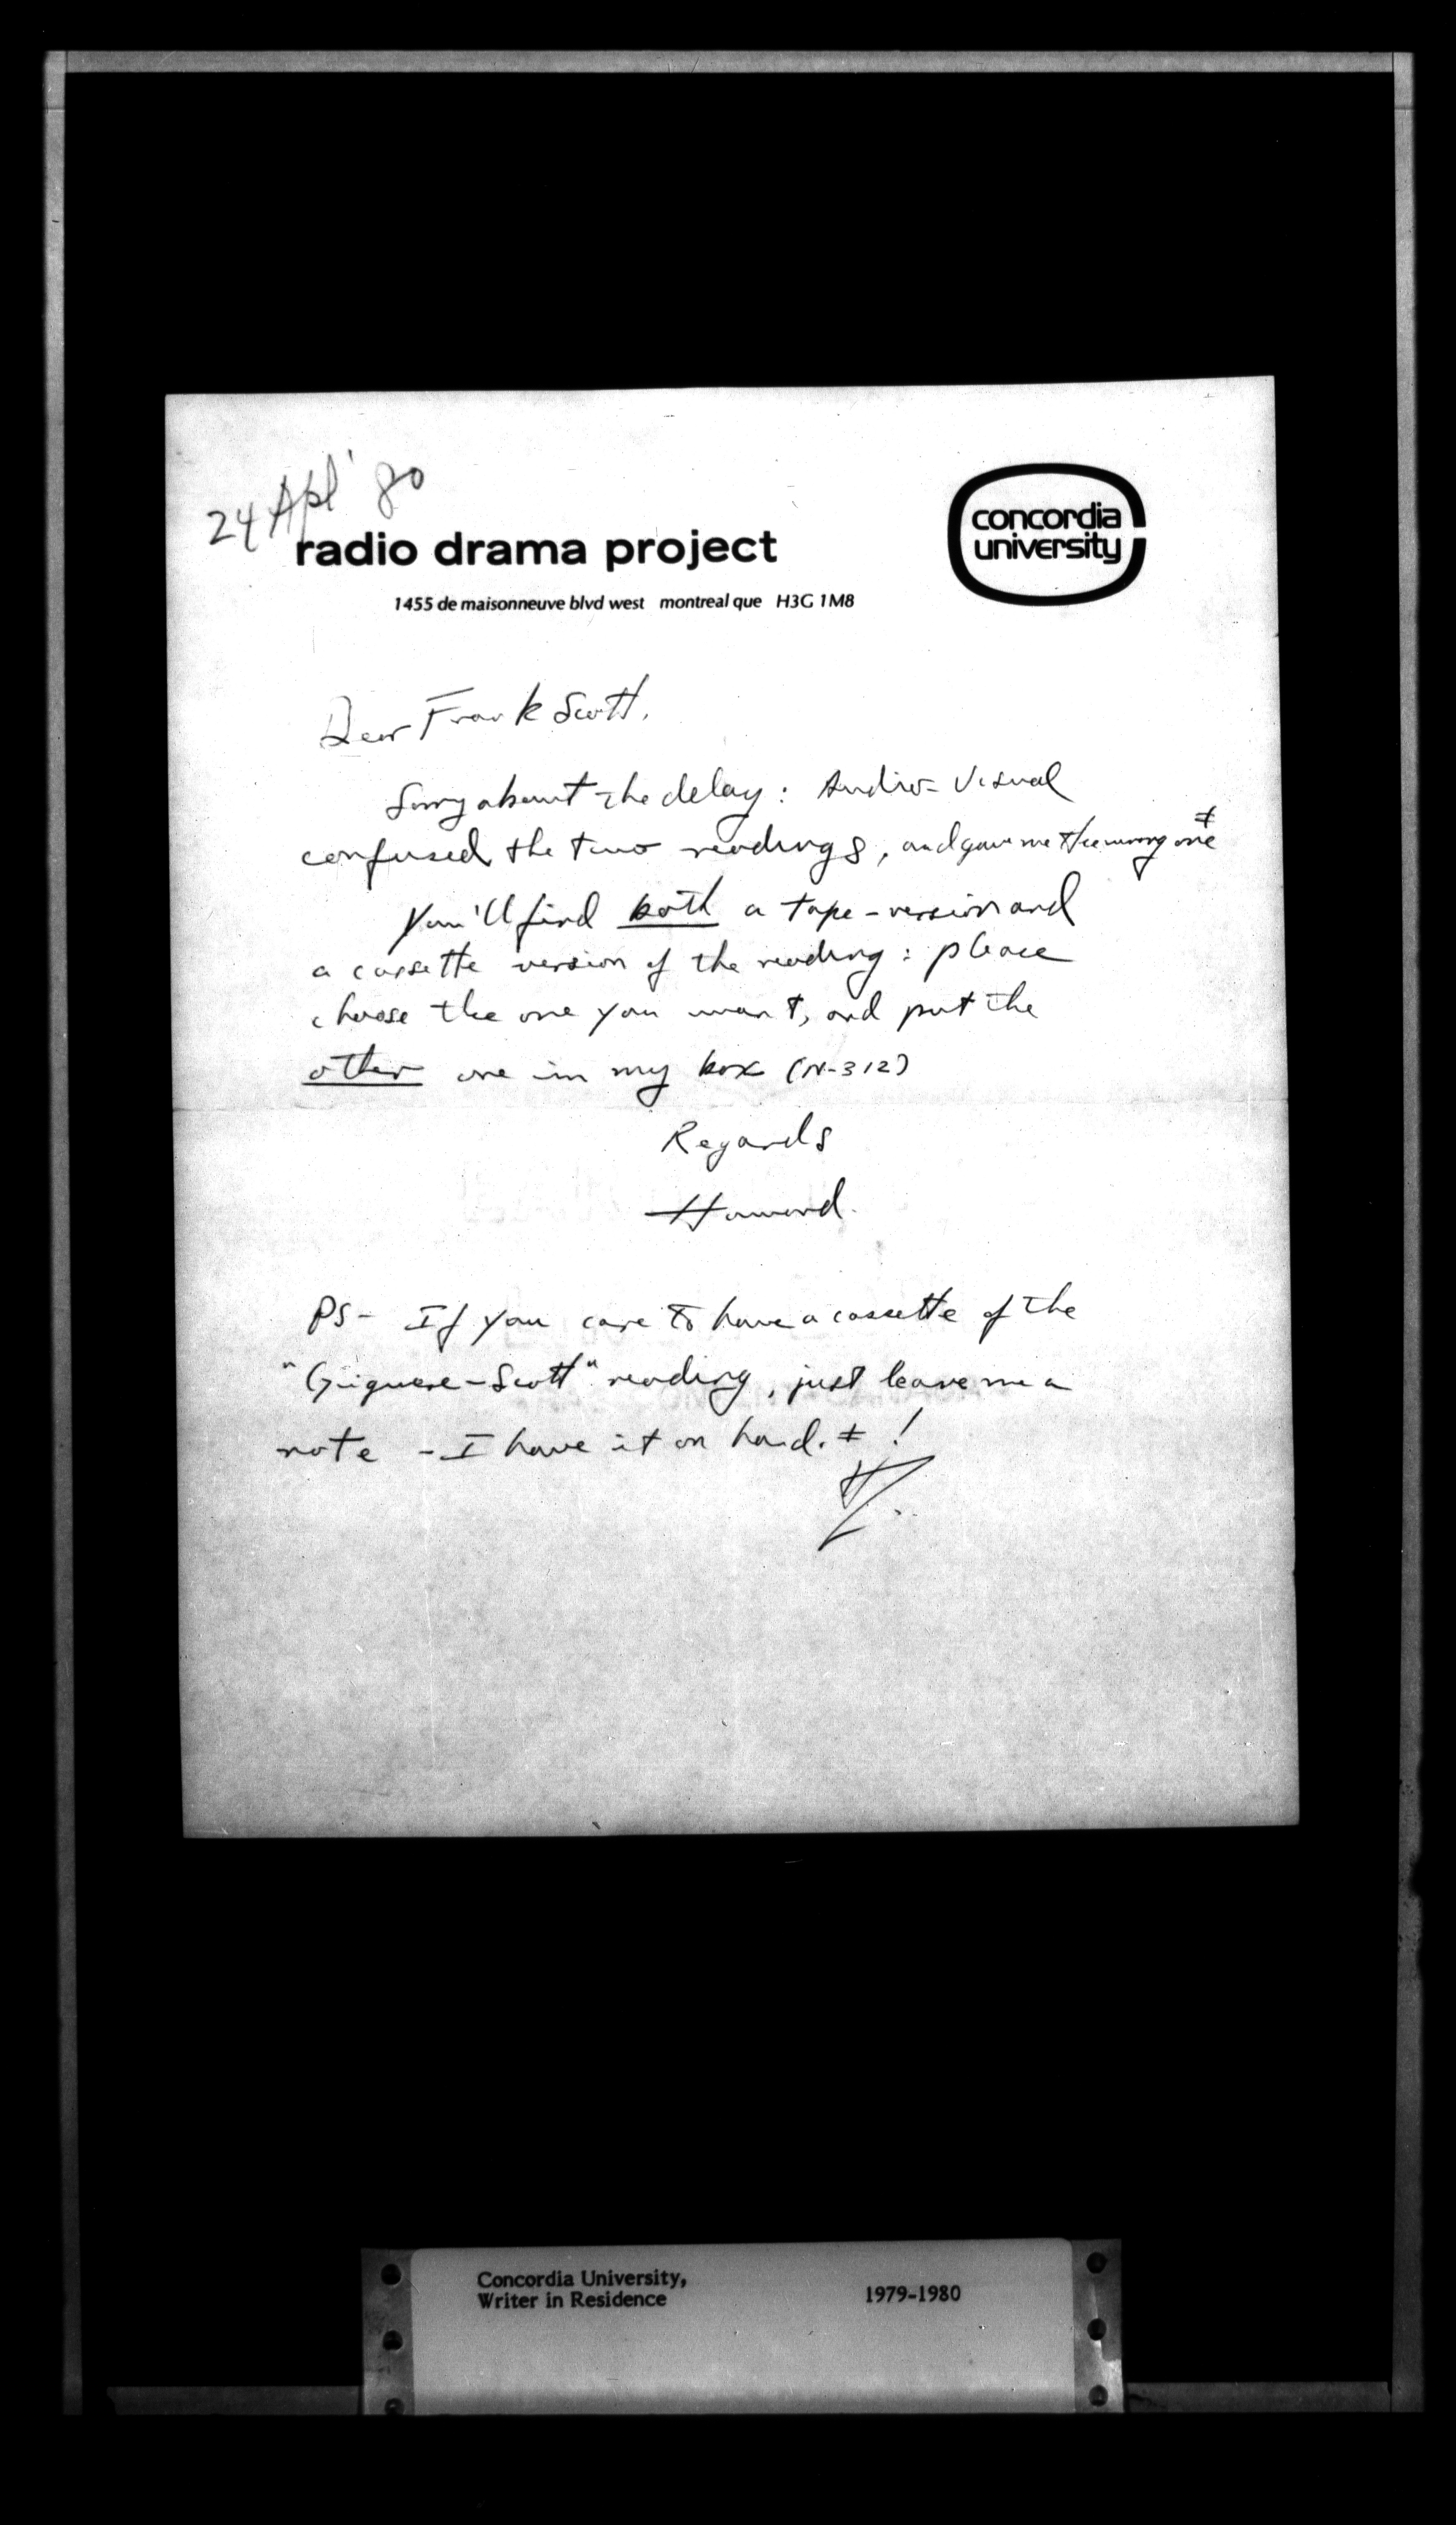 24 Apl '80
radio drama project
concordia
university
1455 de maisonneuve blvd west montreal que H3G 1M8
Dear Frank Scott,
Sorry about the delay: Audio-Visual
confused the two readings, and gave me the wrong one ‡
You'll find both a tape-version and
a cassette version of the reading: please
choose the one you want, and put the
other one in my box (N-312)
Regards
Howard.
PS- If you care to have a cassette of the
"Giguere-Scott" reading, just leave me a
note - I have it on hand. ‡ !
H.
Concordia University,
Writer in Residence
1979-1980